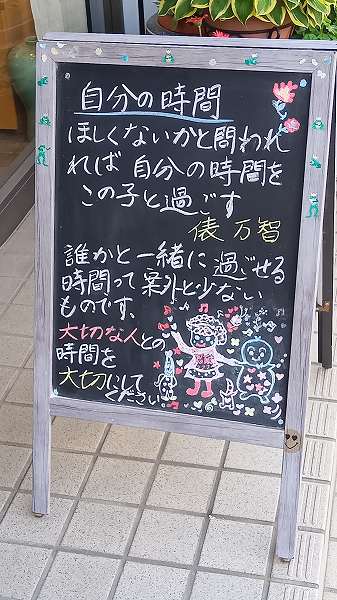 自分の時間
ほしくないかと問われ
れば 自分の時間を
この子と過ごす
俵 万智
誰かと一緒に過ごせる
時間って案外と少ない
ものです、
大切な人との
時間を
大切にして
ください